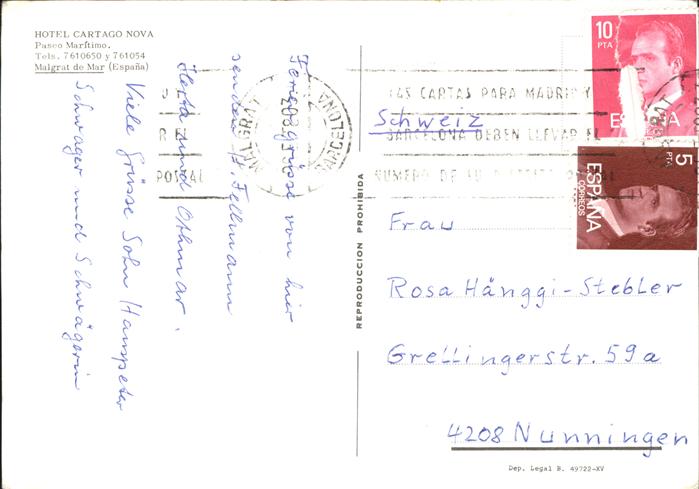 HOTEL CARTAGO NOVA
Paseo Marítimo.
Tels. 7610650 y 761054
Malgrat de Mar (España)
Feriengrüsse von hier
senden H. Fellmann
und Othmar.
Viele Grüsse Sohn Hanspeter
Schwager und Schwägerin
REPRODUCCION PROHIBIDA
MALGRAT
BARCELONA
LAS CARTAS PARA MADRID Y
BARCELONA DEBEN LLEVAR EL
NUMERO DE SU DISTRITO POSTAL
R EL
POSTAL
10
PTA
ESPAÑA
5
PTA
ESPAÑA
CORREOS
Schweiz
Frau
Rosa Hänggi-Stebler
Grellingerstr. 59a
4208 Nunningen
Dep. Legal B. 49722-XV